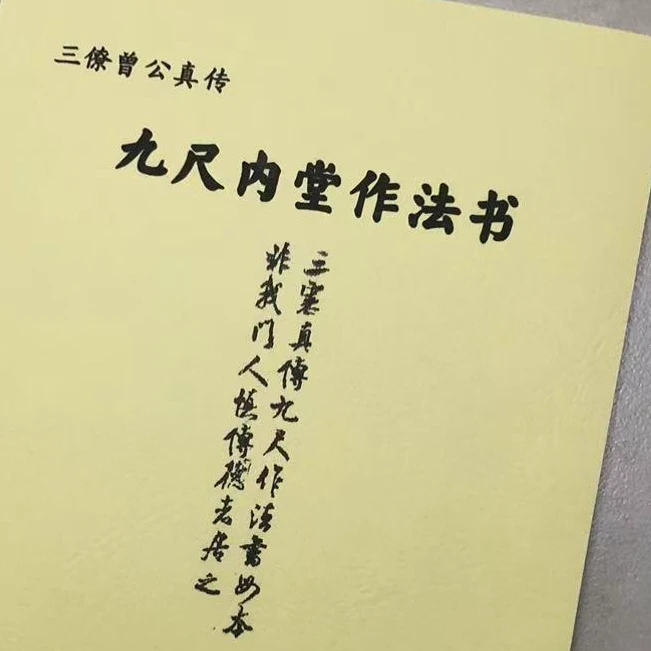 三僚曾公真传
九尺内堂作法书
三寮真傳九尺作法書母本
非我门人慎傳德者居之